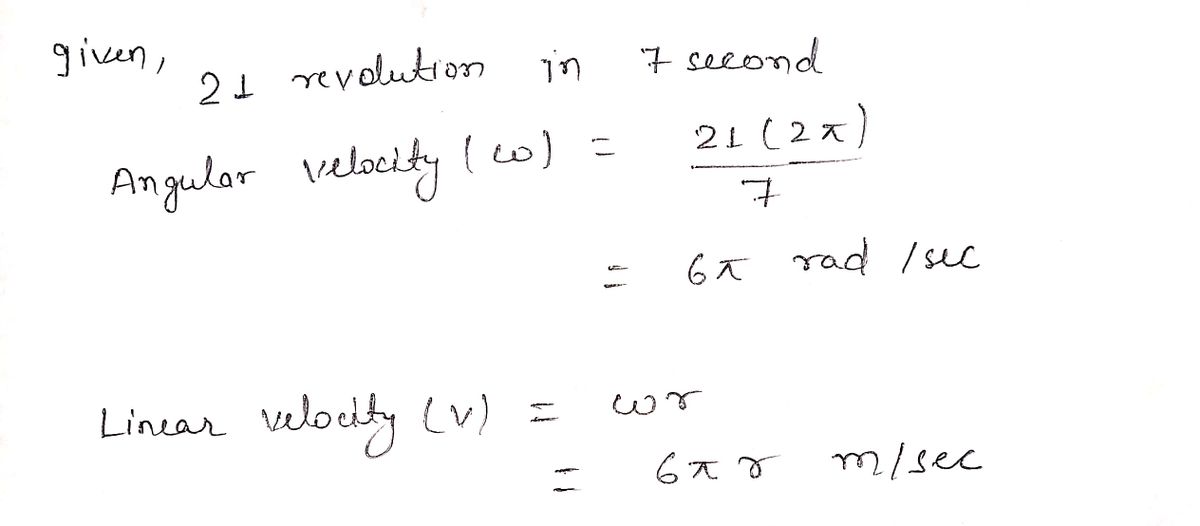 given,
21 revolution in 7 second
Angular velocity (ω) = 21(2π)
7
= 6π rad /sec
Linear velocity (v) = ωr
= 6πr m/sec